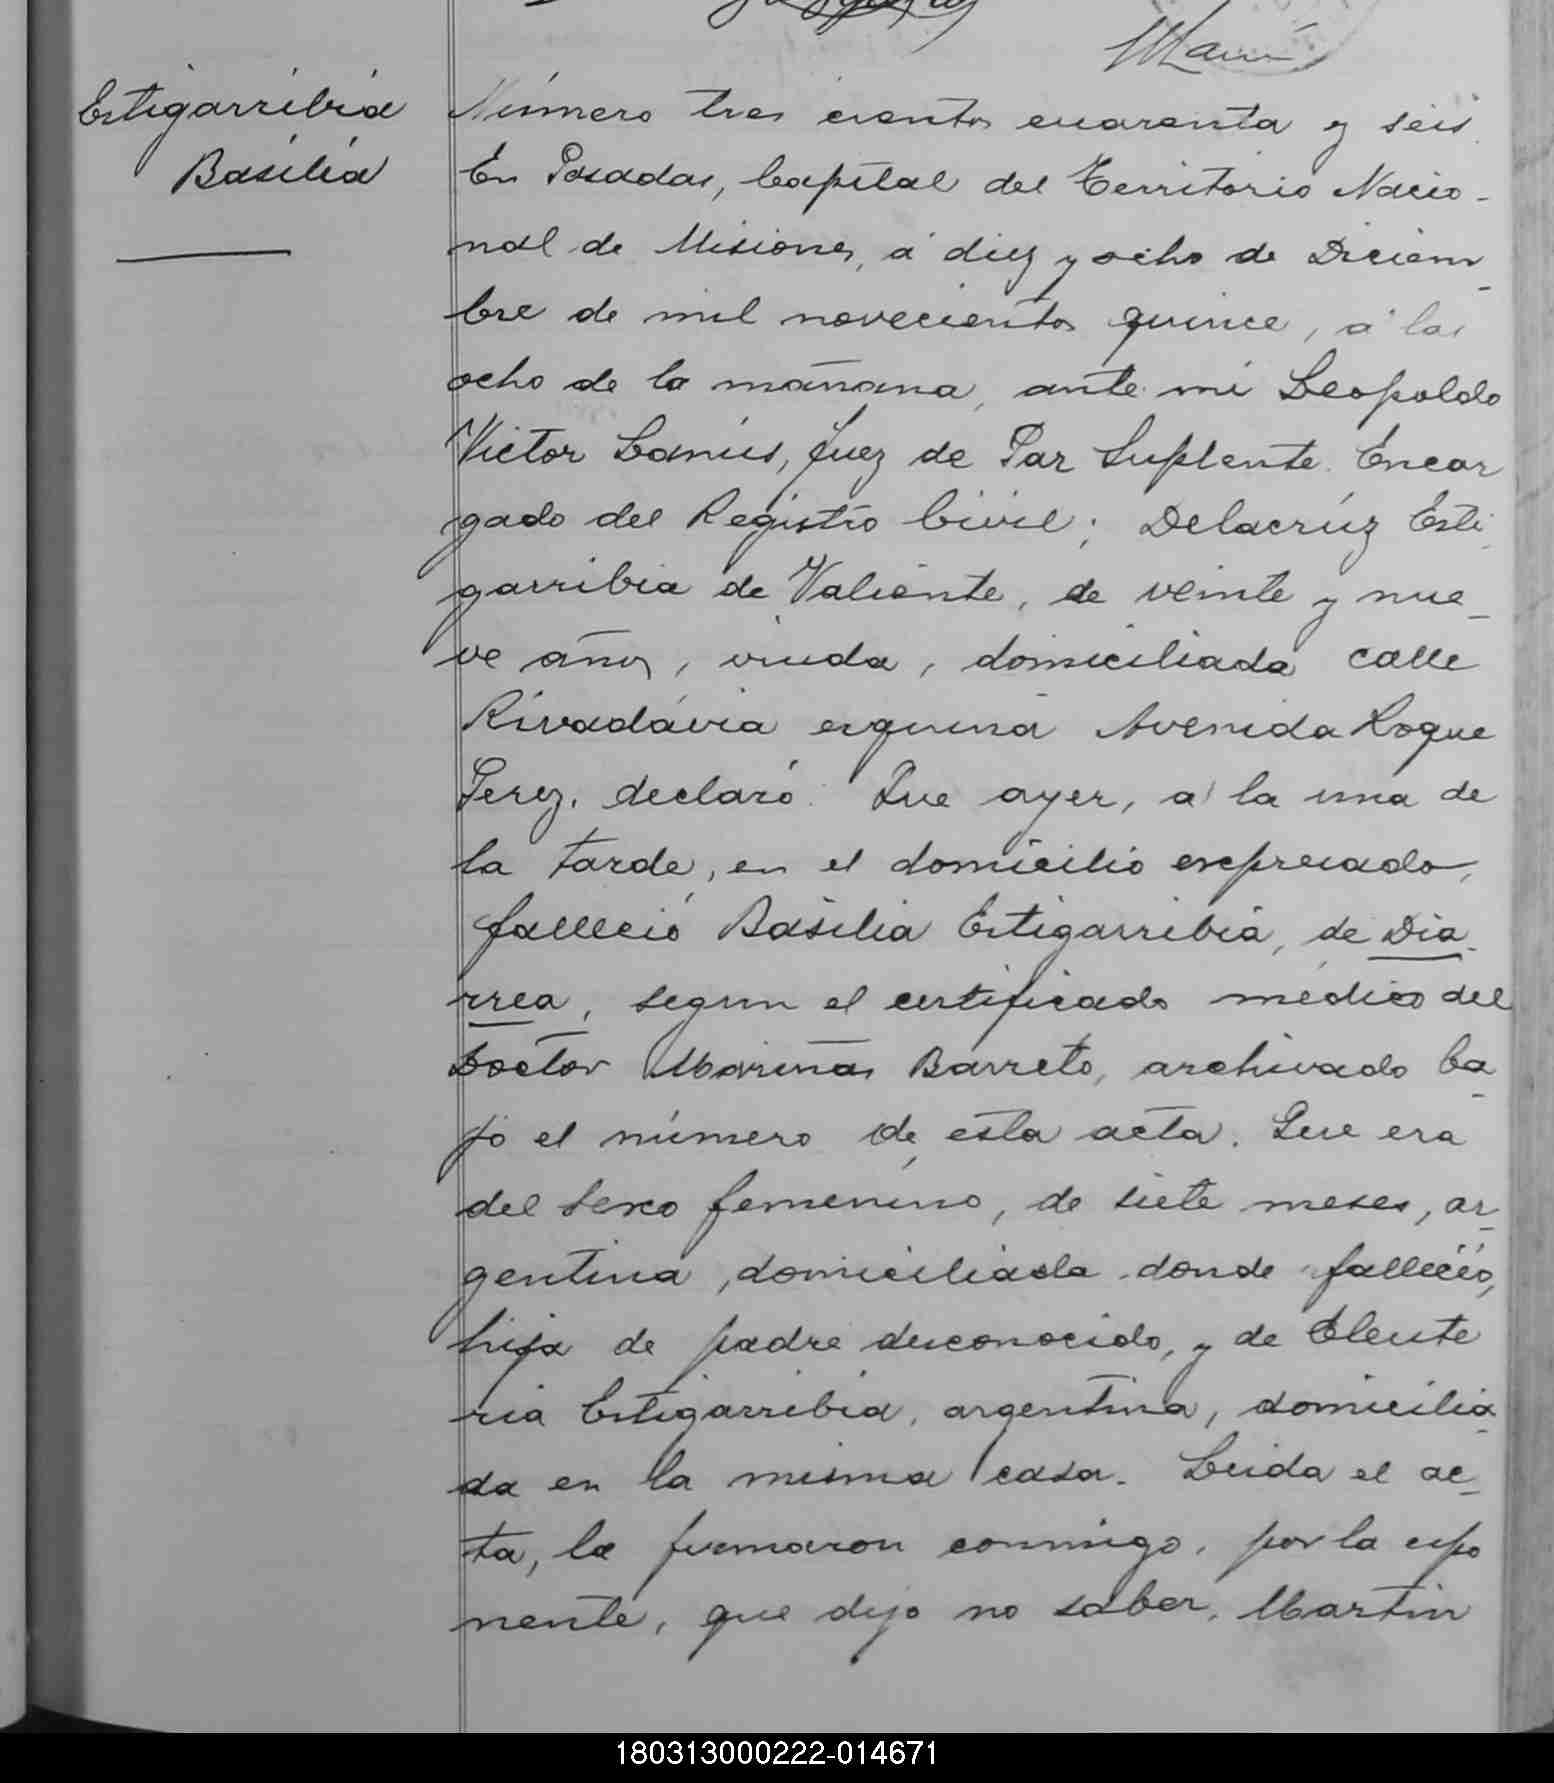 Estigarribia
Basilia
Número tres cientos cuarenta y seis.
En Posadas, Capital del Territorio Nacio-
nal de Misiones, á diez y ocho de Diciem-
bre de mil novecientos quince, á las
ocho de la mañana, ante mi Leopoldo
Victor Lanús, Juez de Paz Suplente Encar
gado del Registro Civil; Delacrúz Esti-
garribia de Valiente, de veinte y nue-
ve años, viuda, domiciliada calle
Rivadavia esquina Avenida Roque
Perez, declaró: Que ayer, a la una de
la tarde, en el domicilio expresado,
falleció Basilia Estigarribia, de Dia-
rrea, segun el certificado médico del
Doctor Mariñas Barreto, archivado ba-
jo el número de esta acta. Que era
del sexo femenino, de siete meses, ar-
gentina, domiciliada donde falleció,
hija de padre desconocido, y de Eleute
ria Estigarribia, argentina, domicilia-
da en la misma casa. Leida el ac-
ta, la firmaron conmigo, por la espo
nente, que dijo no saber, Martin
180313000222-014671